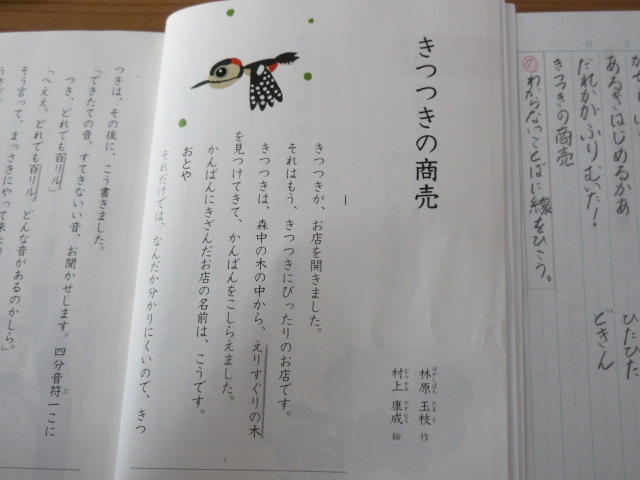 月 日
あるきはじめるかあ
だれかがふりむいた!
ひたひた
どきん
きつつきの商売
め わからないことばに線をひこう。
きつつきの商売
林原 玉枝 作
はやしばら たまえ
村上 康成 絵
むらかみ やすなり
一
きつつきが、お店を開きました。
それはもう、きつつきにぴったりのお店です。
きつつきは、森中の木の中から、えりすぐりの木
を見つけてきて、かんばんをこしらえました。
かんばんにきざんだお店の名前は、こうです。
おとや
それだけでは、なんだか分かりにくいので、きつ
つきは、その後に、こう書きました。
「できたての音、すてきないい音、お聞かせします。四分音符一こに
つき、どれでも百リル。」
「へええ。どれでも百リル。どんな音があるのかしら。」
そう言って、まっさきにやって来た